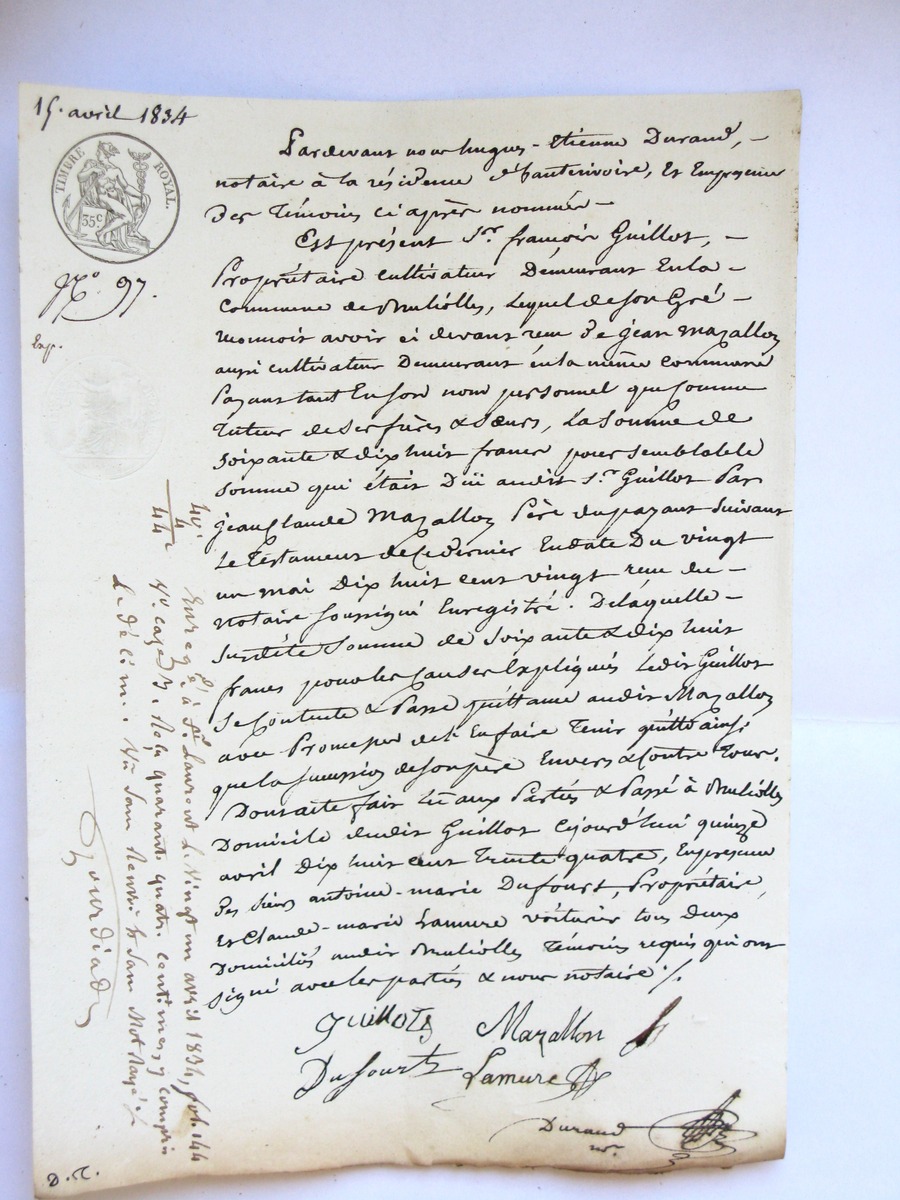 15. avril 1834
TIMBRE ROYAL.
35 c
N.º 97.
Exp.
Pardevant nous hugues-Etienne Durand, –
notaire à la résidence d'hauterivoire, et En presence
Des Témoins ci après nommés –
Est présent S.r françois Guillot, –
Propriétaire cultivateur Demeurant En la –
Commune de Brulliolles, Lequel de son Gré –
reconnoit avoir ci devant reçu De jean Mazallon
aussi cultivateur Demeurant én la même commune
Payant tant En son nom personnel que Comme
Tuteur de Ses frères & Sœurs, La Somme de
Soixante & dix huit francs pour semblable
Somme qui était Düë audit S.r Guillot Par
jean Claude Mazallon Père du payant Suivant
Le Testament de Ce dernier En date Du vingt
un mai Dix huit cent vingt reçu du –
notaire soussigné Enregistré. De laquelle –
Susdite Somme de Soixante & dix huit
francs pour les Causes Expliqués Ledit Guillot
Se Contente & Passe quittance audit Mazallon
avec Promesse de l'En faire Tenir quitte ainsi
que la succession de son père Envers & Contre Tous.
Dont acte fait Lu aux Parties & Passé à Brulliolles
Domicile dudit Guillot Cejourd'hui quinze
avril Dix huit cent Trente quatre, En presence
Des sieurs antoine-marie Dufourt, Propriétaire,
Et Claude-marie Lamure voiturier tous Deux
Domiciliés audit Brulliolles Témoins requis qui ont
signé avec les parties & nous notaire ./.
Guillot
Mazallon
Dufourt
Lamure
Durand
n.re
40.c
4
44 c
Enregé à St Laurent le vingt un avril 1834, fol. 144
vº. case 3. Reçu quarante quatre centimes y compris
Le décime. Un sans Renvoi & sans Mot Rayé ./.
Bourdiad
D. R.